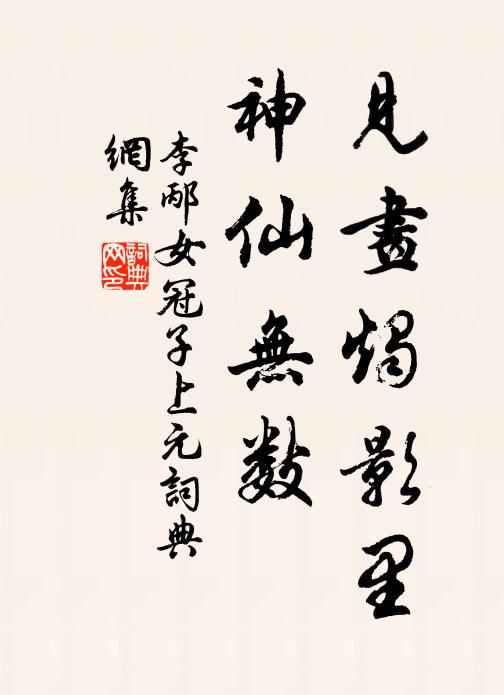 見畫燭影里
神仙無数
李邴女冠子上元詞典
網集
詞典網印